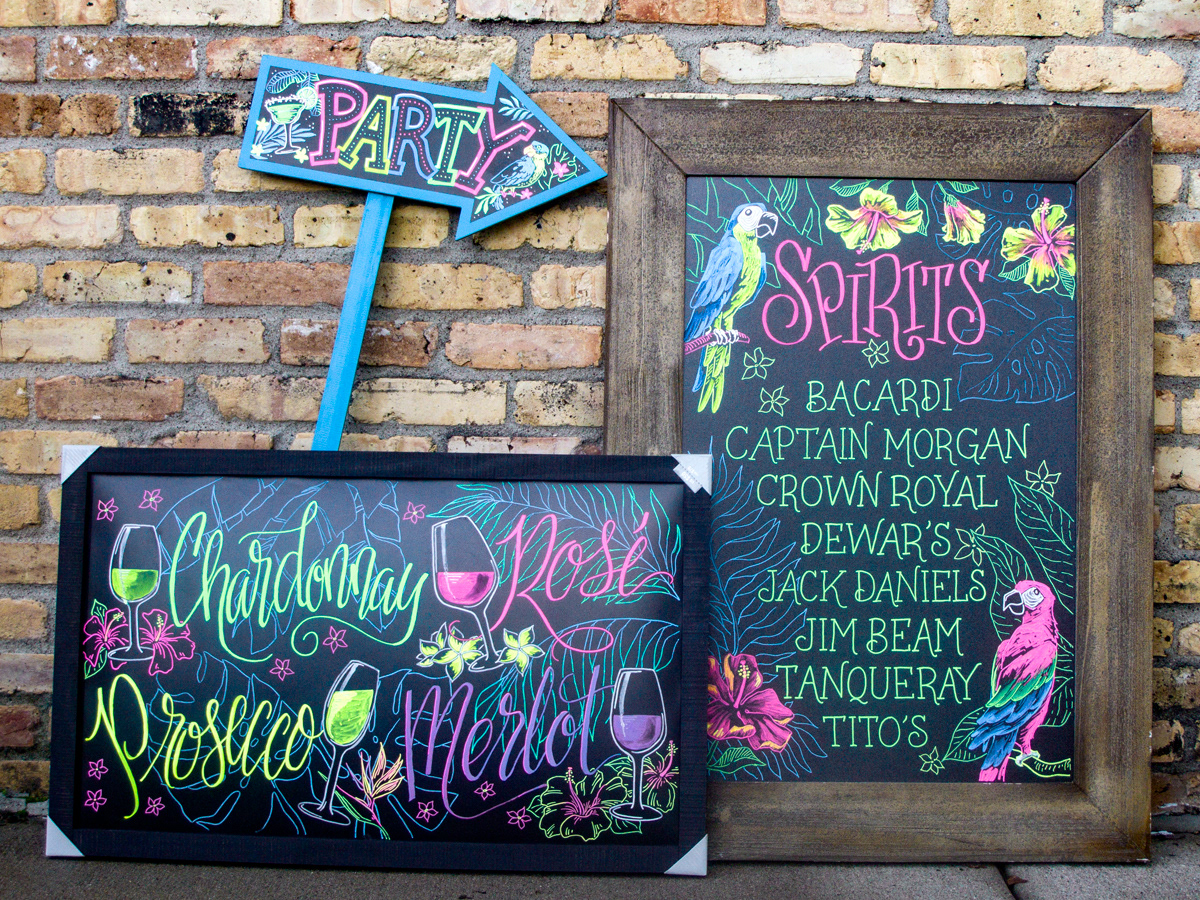 PARTY
SPIRITS
BACARDI
CAPTAIN MORGAN
CROWN ROYAL
DEWAR'S
JACK DANIELS
JIM BEAM
TANQUERAY
TITO'S
Chardonnay
Rosé
Prosecco
Merlot